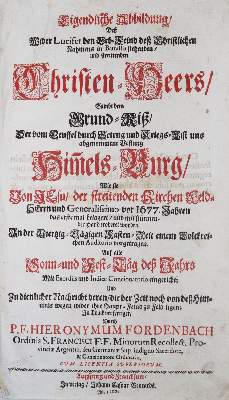 Eigendliche Abbildung/
Deß
Wider Lucifer den Erb-Feind deß Christlichen
Nahmens in Battalia stehenden/
und streitenden
Christen-Heers/
Sambt dem
Grund-Riß/
Der vom Teuffel durch Betrug und Kriegs-List uns
abgenommenen Vestung
Himmels-Burg/
Wie sie
Von JEsu/ der streitenden Kirchen Feld-
Herrn und Generalissimo vor 1677. Jahren
belagert/ und mit
worden
In der Viertzig-Tägigen Fasten-Zeit einem Volckrei-
chen Auditorio vorgetragen.
Auf alle
Sonn-und Fest-Täg deß Jahrs
Mit Exordiis und Indice Concionatorio eingericht/
Und
Zu dienlicher Nachricht deren/die der Zeit noch von deß Him-
mels wegen wider ihre Haupt-Feind zu Feld ligen
In Truck verfertiget/
Durch
P. F. HIERONYMUM FORDENBACH
Ordinis S. FRANCISCI F. F. Minorum Recollect. Pro-
vinciæ Argentin. seu Germaniæ Sup. indigno Sacerdote,
& Concionatore Ordinario.
CUM LICENTIA SUPERIORUM.
Franckfurt/
In Verlag/ Johann Caspar Bencards.